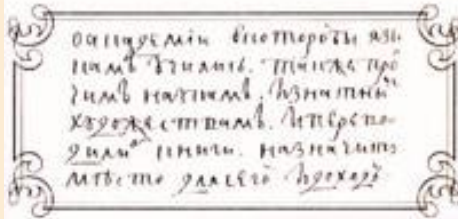 оакадемiи вкоторо бы язы
камъ училис. также про
чимъ наукамъ. Iзнатны
художествамъ. Iперево
дили книги. назначить
мѣсто длясего Iдоходъ